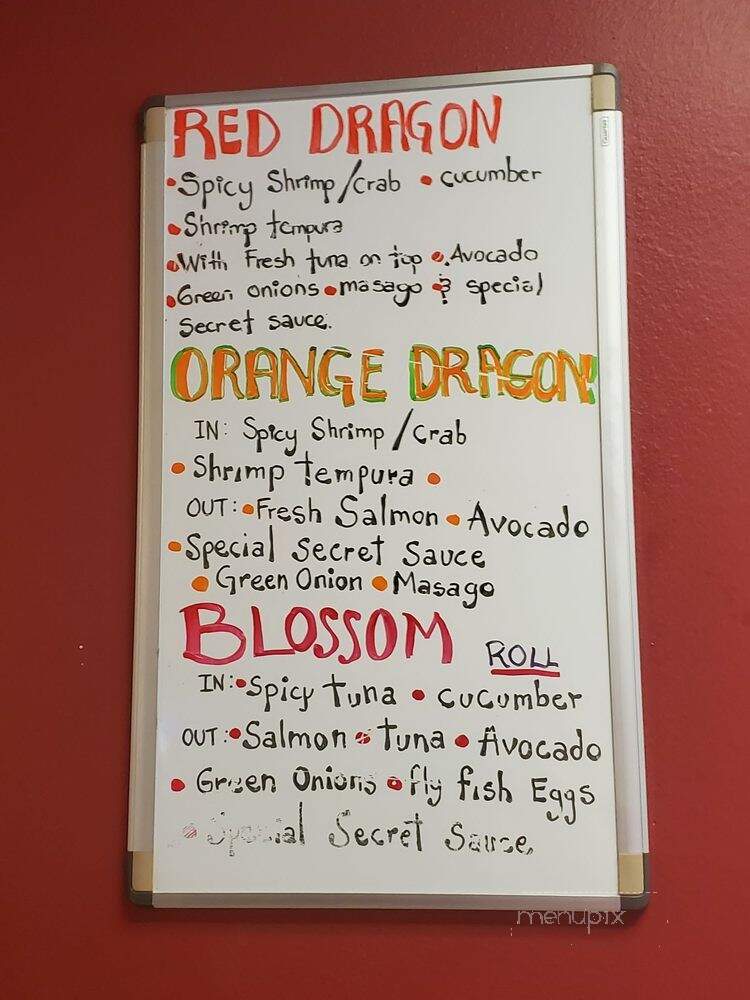 RED DRAGON
• Spicy Shrimp/Crab • cucumber
• Shrimp tempura
• With Fresh tuna on top • Avocado
• Green onions • masago & special
Secret sauce.
ORANGE DRAGON!
IN: Spicy Shrimp/Crab
• Shrimp tempura •
OUT: • Fresh Salmon • Avocado
• Special Secret Sauce
• Green Onion • Masago
BLOSSOM ROLL
IN: • Spicy tuna • cucumber
OUT: • Salmon • tuna • Avocado
• Green Onions • fly fish Eggs
• Special Secret Sauce,
menupix